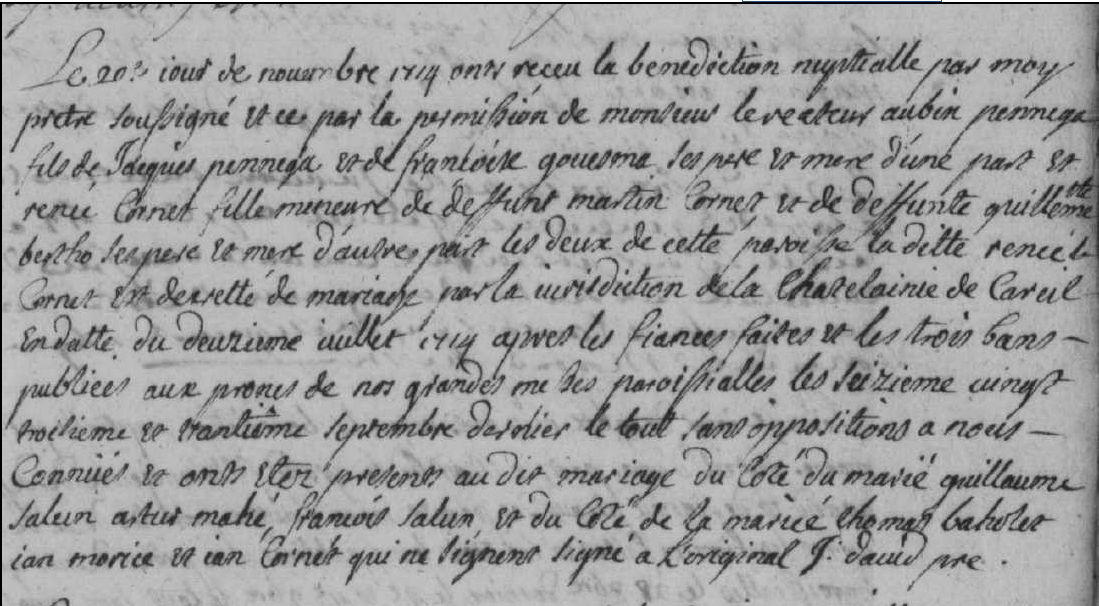 Le 20e iour de nouembre 1714 onts receu la benediction nuptialle par moy
pretre soussigné et ce par la permission de monsieur le recteur aubin pennega
fils de Jacques pennega et de francoise gouesma ses pere et mere d'une part et
renée Cornet fille mineure de deffunt martin Cornet et de deffunte guillemette
bertho ses pere et mere d'autre part les deux de cette paroisse la ditte renée
Cornet est decretté de mariage par la iurisdiction de la Chatelainie de Careil
En datte du deuzieme iuillet 1714 apres les fiances faites et les trois bans
publiees aux prones de nos grandes messes paroissialles les seizieme vingt
troisieme et trantiéme septembre dernier le tout sans oppositions a nous
Connües et onts etez presents au dit mariage du Coté du marié guillaume
salun artur mahé, francois salun et du Coté de la mariée thomas baholet
ian morice et ian Cornet qui ne signent signé a L'original J. dauid pre.